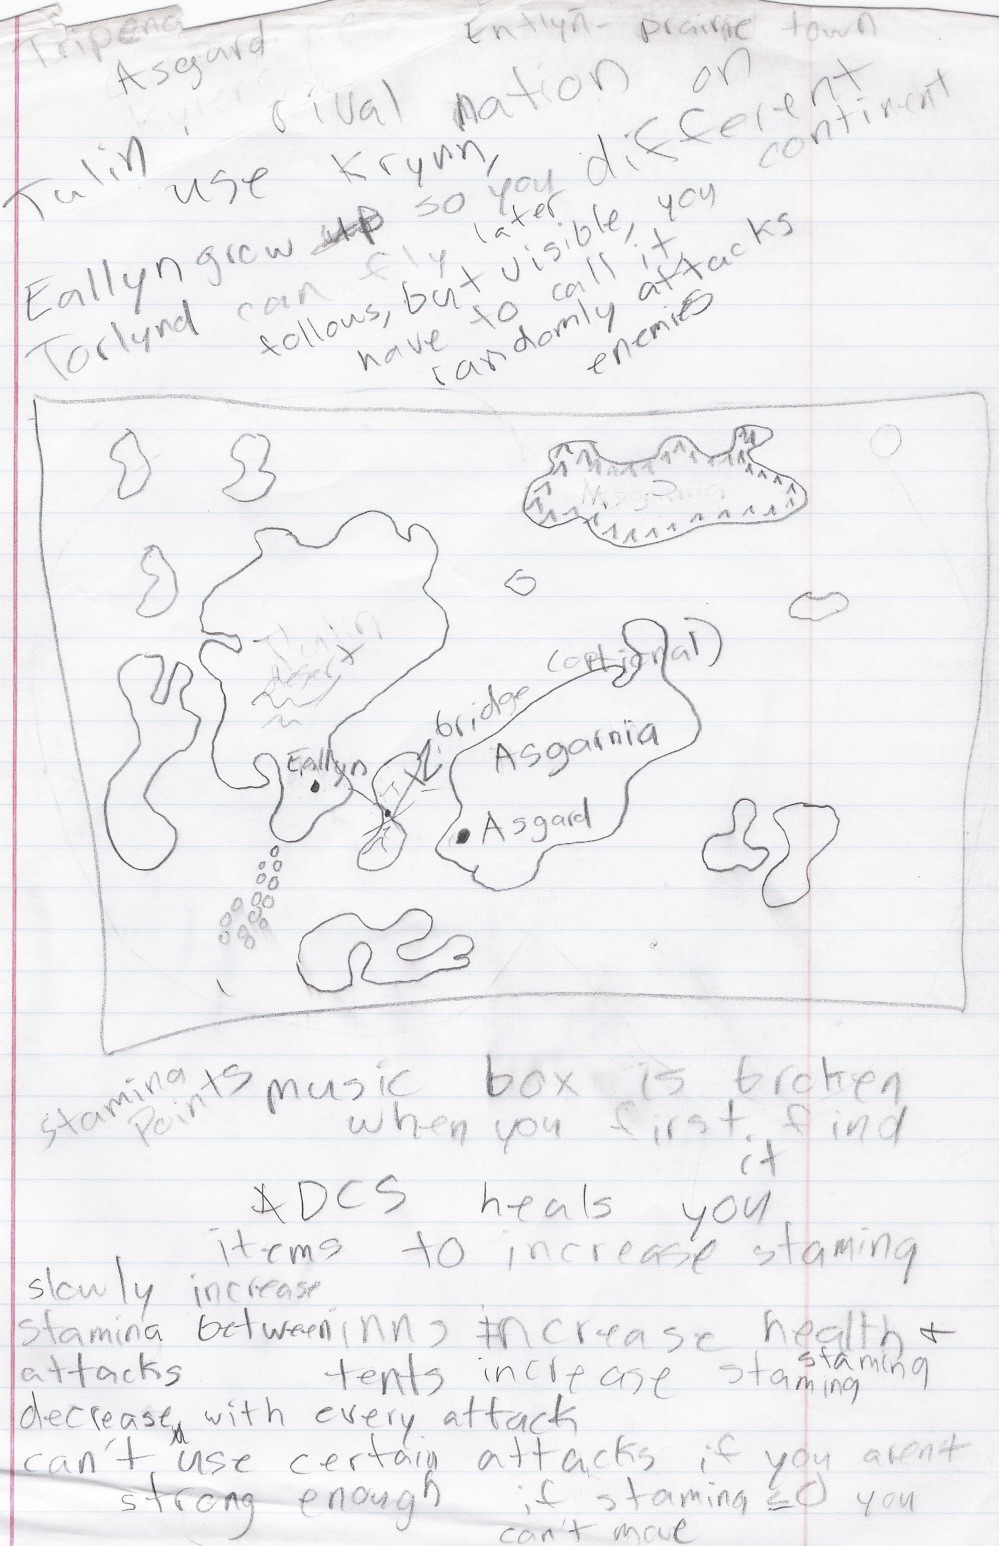 Tripena
Entlyn- prairie town
Asgard
Tulin, rival nation on
different
continent
use Krynn,
Eallyn grow up so you
Torlynd can fly later
follows, but visible, you
have to call it
randomly attacks
enemies
Thulin
desert
(optional)
bridge
Asgarnia
Eallyn
Asgard
stamina
points
music box is broken
when you first find
it
ADCS heals you
items to increase stamina
slowly increase
stamina between
attacks
inns increase health +
stamina
tents increase stamina
decrease with every attack
can't use certain attacks if you arent
strong enough
if stamina ≤0 you
can't move